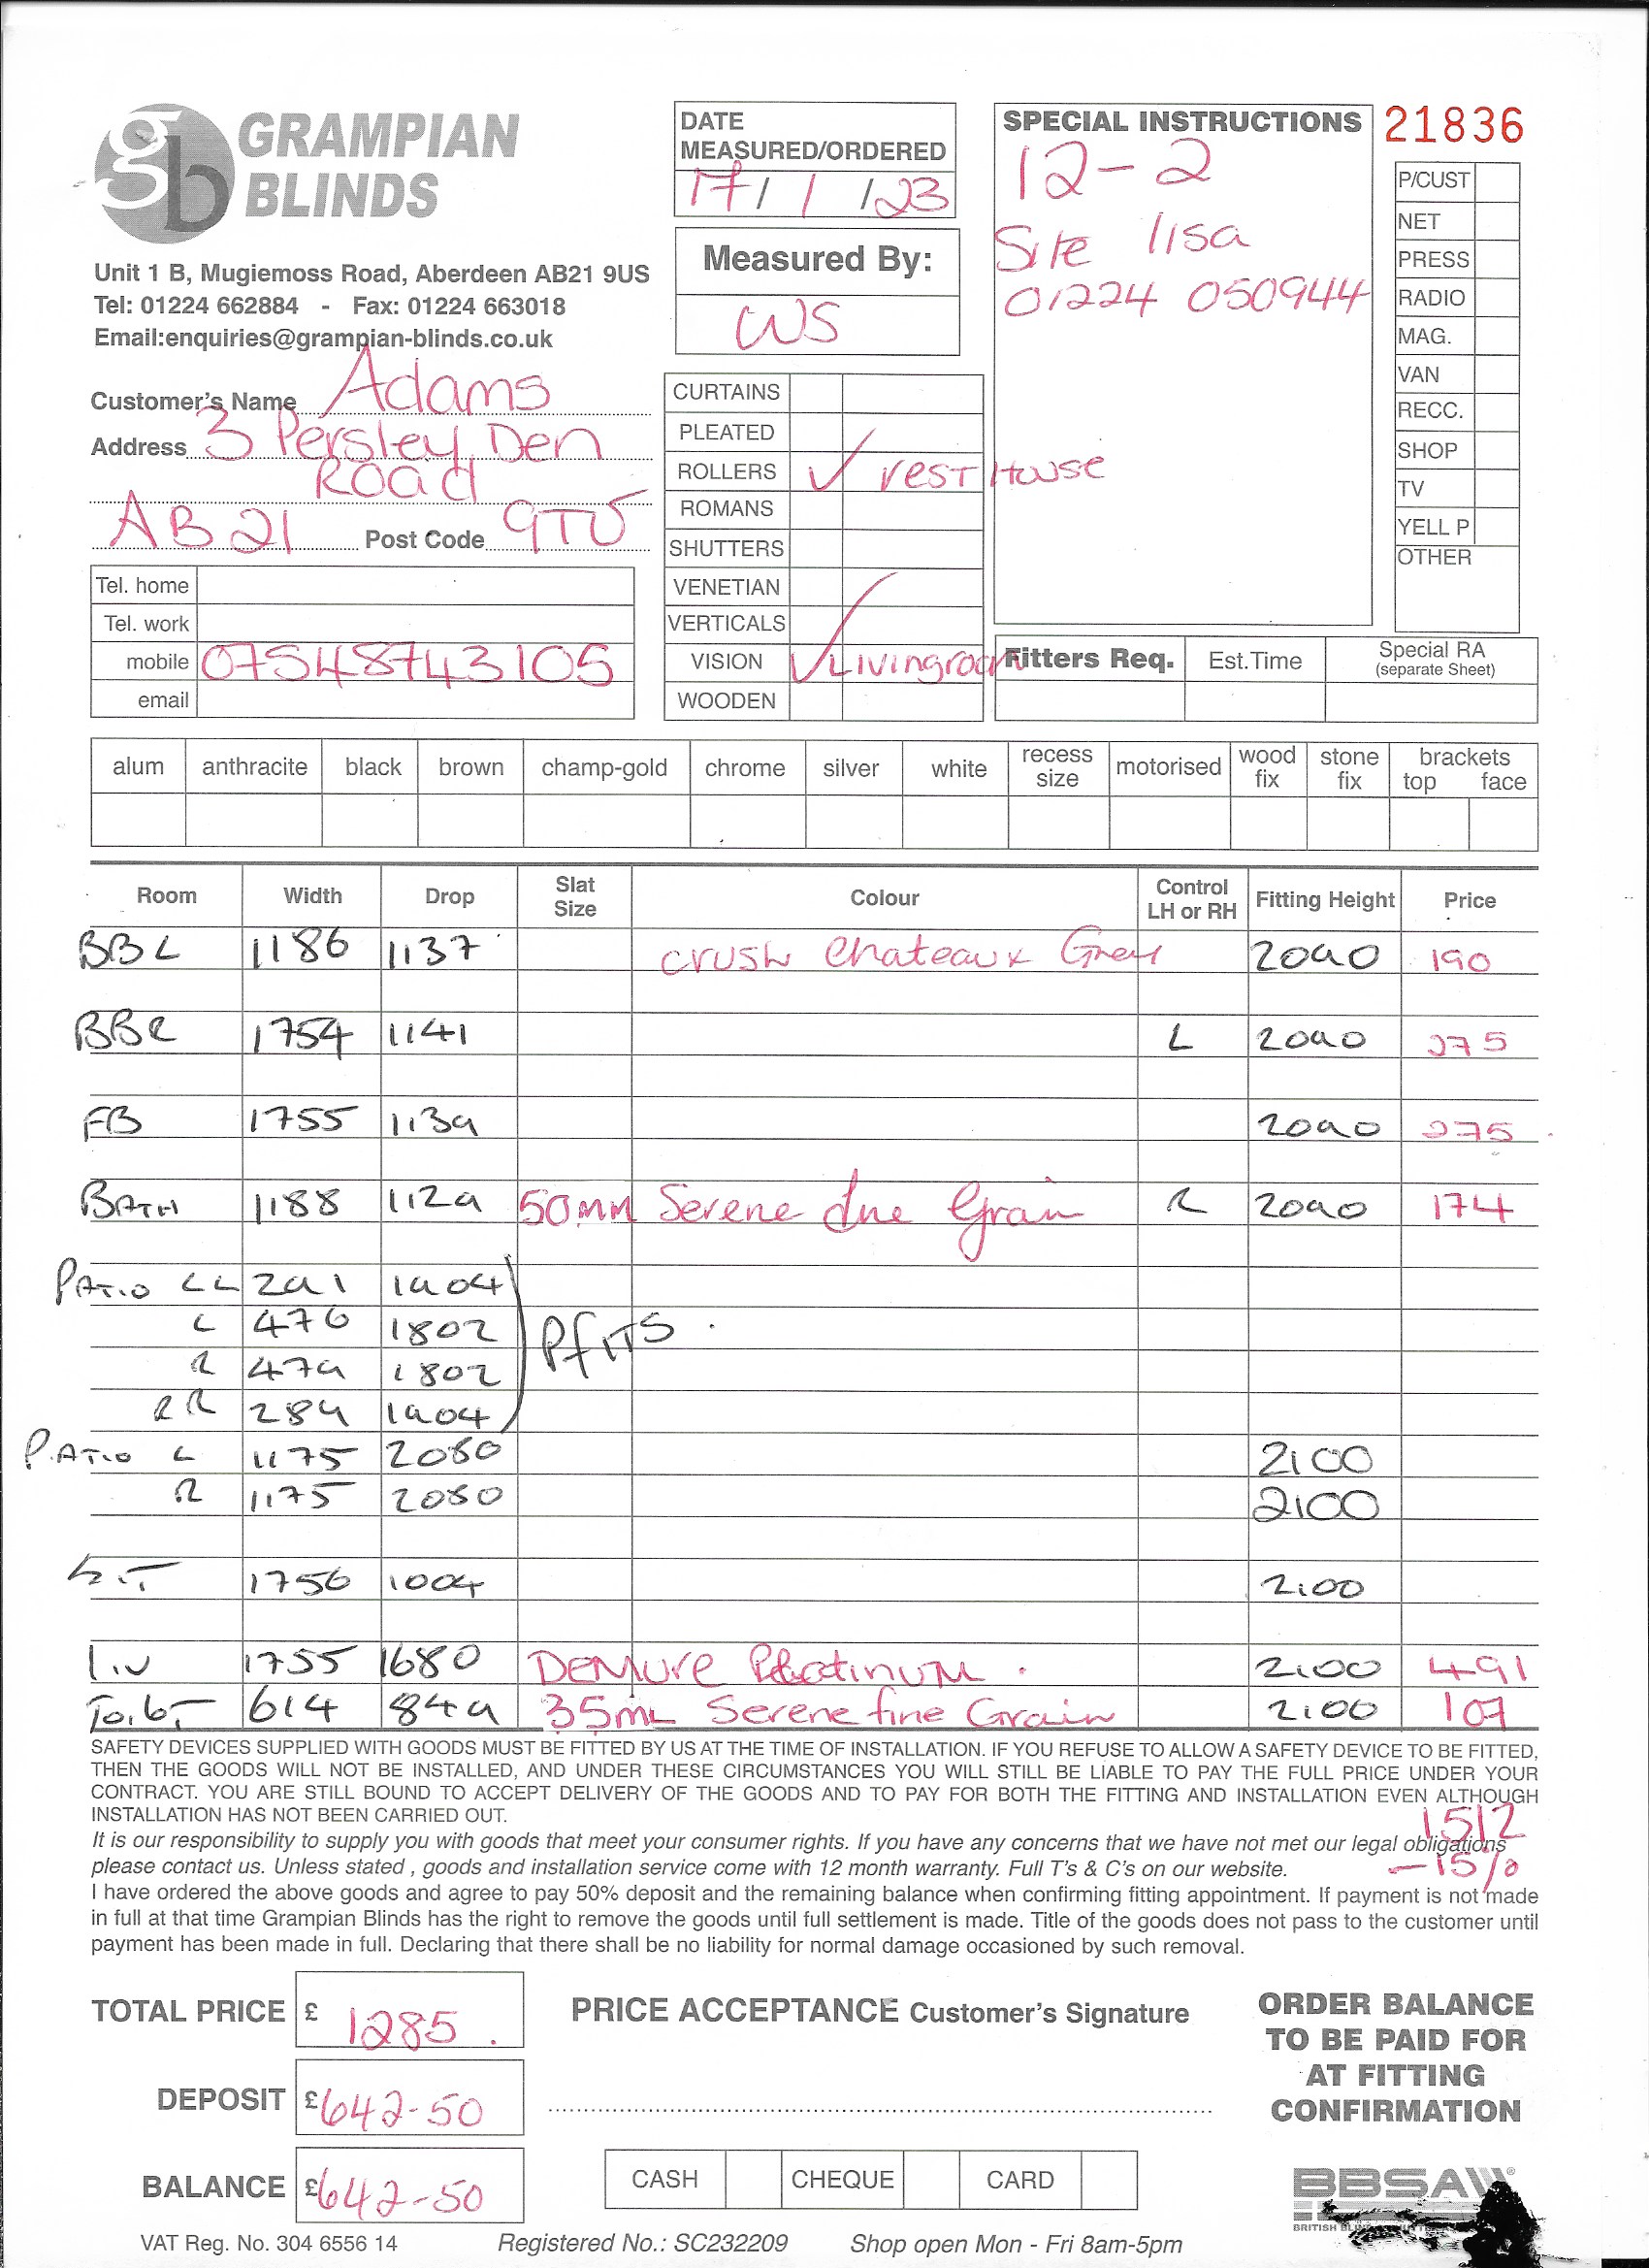 GRAMPIAN
BLINDS
Unit 1 B, Mugiemoss Road, Aberdeen AB21 9US
Tel: 01224 662884 - Fax: 01224 663018
Email:enquiries@grampian-blinds.co.uk
Customer's Name Adams
Address 3 Persley Den
Road
AB21 Post Code 9TU
Tel. home
Tel. work
mobile 07548743105
email
DATE
MEASURED/ORDERED
17/1/23
Measured By:
WS
CURTAINS
PLEATED
ROLLERS ✓ rest House
ROMANS
SHUTTERS
VENETIAN
VERTICALS
VISION ✓ Livingroom
WOODEN
SPECIAL INSTRUCTIONS
12-2
Site lisa
01224 050944
21836
P/CUST
NET
PRESS
RADIO
MAG.
VAN
RECC.
SHOP
TV
YELL P
OTHER
Fitters Req. Est.Time Special RA
(separate Sheet)
alum anthracite black brown champ-gold chrome silver white recess size motorised wood fix stone fix brackets top face
Room Width Drop Slat Size Colour Control LH or RH Fitting Height Price
BBL 1186 1137 crush Chateaux Grey 2090 190
BBR 1754 1141 L 2090 275
FB 1755 1139 2090 275
BATH 1188 1129 50mm Serene fine Grain R 2090 174
PATIO LL 291 1904
L 476 1802 Pfits.
R 479 1802
RR 289 1904
PATIO L 1175 2080 2100
R 1175 2080 2100
KIT 1756 1004 2100
Liv 1755 1680 Demure Platinum. 2100 491
Toilet 614 849 35mL Serene fine Grain 2100 107
SAFETY DEVICES SUPPLIED WITH GOODS MUST BE FITTED BY US AT THE TIME OF INSTALLATION. IF YOU REFUSE TO ALLOW A SAFETY DEVICE TO BE FITTED,
THEN THE GOODS WILL NOT BE INSTALLED, AND UNDER THESE CIRCUMSTANCES YOU WILL STILL BE LIABLE TO PAY THE FULL PRICE UNDER YOUR
CONTRACT. YOU ARE STILL BOUND TO ACCEPT DELIVERY OF THE GOODS AND TO PAY FOR BOTH THE FITTING AND INSTALLATION EVEN ALTHOUGH
INSTALLATION HAS NOT BEEN CARRIED OUT.
1512
It is our responsibility to supply you with goods that meet your consumer rights. If you have any concerns that we have not met our legal obligations
please contact us. Unless stated , goods and installation service come with 12 month warranty. Full T's & C's on our website.
-15%
I have ordered the above goods and agree to pay 50% deposit and the remaining balance when confirming fitting appointment. If payment is not made
in full at that time Grampian Blinds has the right to remove the goods until full settlement is made. Title of the goods does not pass to the customer until
payment has been made in full. Declaring that there shall be no liability for normal damage occasioned by such removal.
TOTAL PRICE £ 1285.
DEPOSIT £642-50
BALANCE £642-50
PRICE ACCEPTANCE Customer's Signature
CASH CHEQUE CARD
ORDER BALANCE
TO BE PAID FOR
AT FITTING
CONFIRMATION
BBSA
BRITISH
VAT Reg. No. 304 6556 14 Registered No.: SC232209 Shop open Mon - Fri 8am-5pm